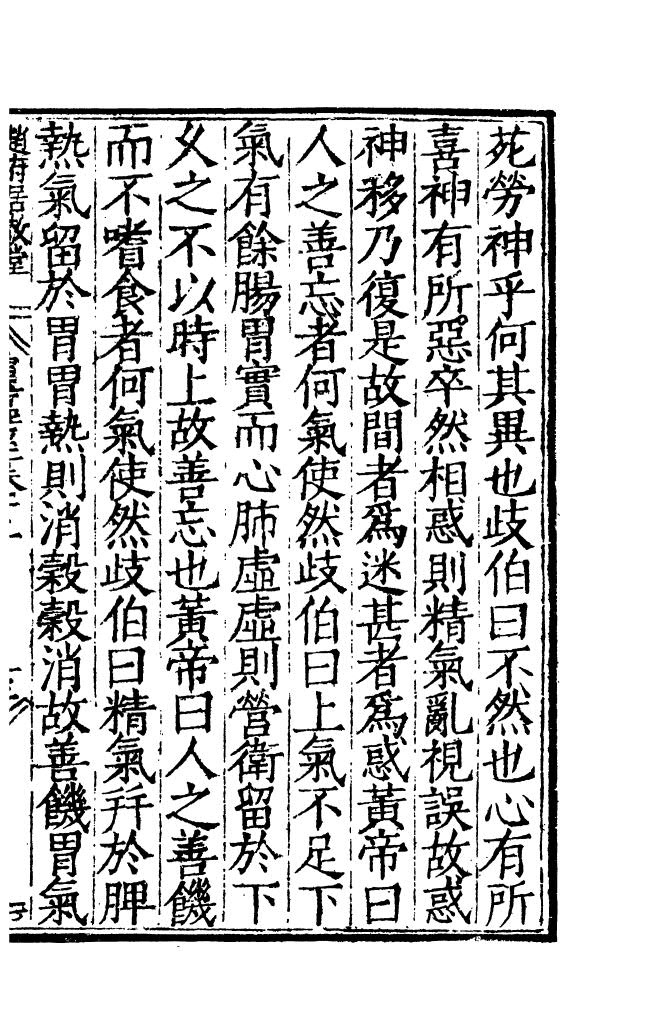 苑勞神乎何其異也歧伯曰不然也心有所
喜神有所惡卒然相惑則精氣亂視誤故惑
神移乃復是故間者爲迷甚者爲惑黃帝曰
人之善忘者何氣使然歧伯曰上氣不足下
氣有餘腸胃實而心肺虛虛則營衛留於下
乆之不以時上故善忘也黃帝曰人之善饑
而不嗜食者何氣使然歧伯曰精氣并於脾
熱氣留於胃胃熱則消穀穀消故善饑胃氣
趙府居敬堂